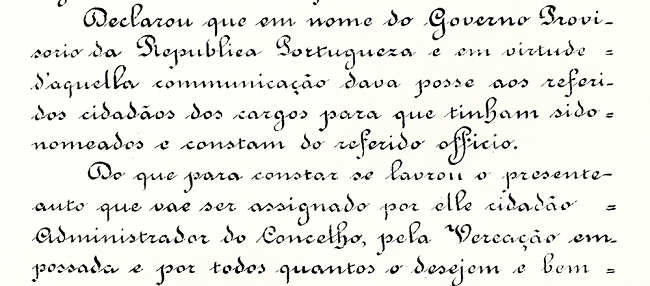 Declarou que em nome do Governo Provi-
sorio da Republica Portugueza e em virtude =
d'aquella communicação dava posse aos referi-
dos cidadãos dos cargos para que tinham sido =
nomeados e constam do referido officio.
Do que para constar se lavrou o presente-
auto que vae ser assignado por elle cidadão =
Administrador do Concelho, pela Vereação em-
possada e por todos quantos o desejem e bem =